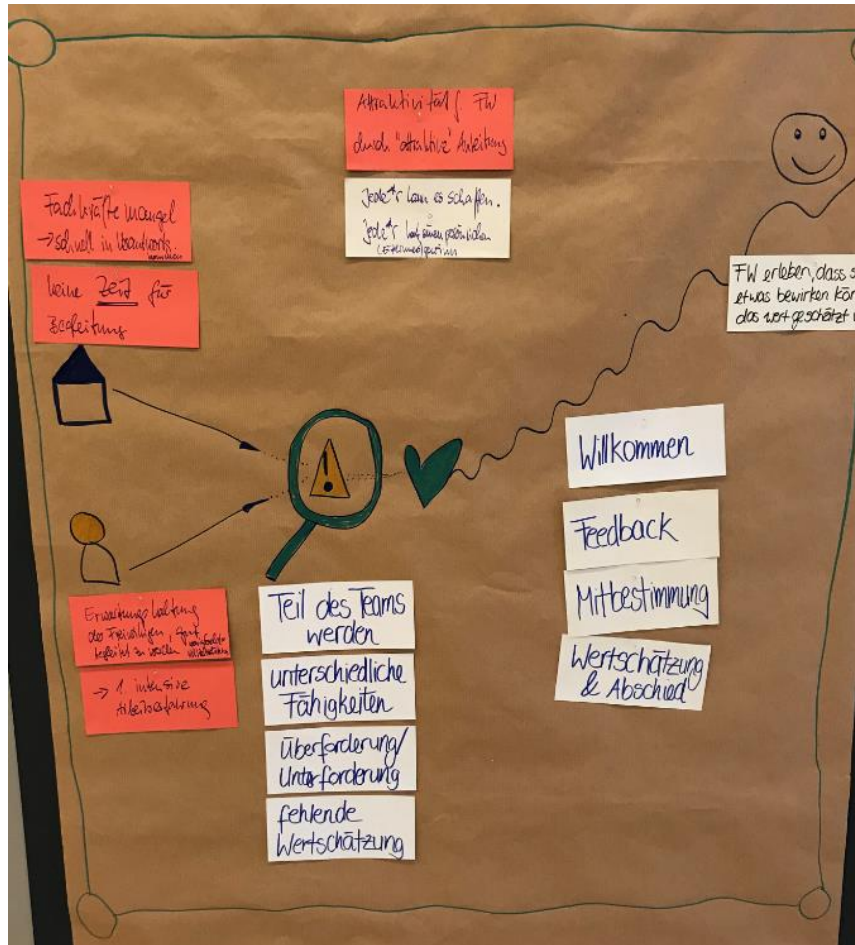 Attraktivität f. FW
durch "attraktive" Anleitung
Jede*r kann es schaffen.
Jede*r hat einen persönlichen
Fachkräftemangel
→ schnell in Verantwort.
keine Zeit für
Begleitung
FW erleben, dass s
etwas bewirken kön
das wertgeschätzt
!
Willkommen
Feedback
Mitbestimmung
Wertschätzung
& Abschied
Erwartungshaltung
des Freiwilligen, gut
begleitet zu werden
→ 1. intensive
Arbeitserfahrung
Teil des Teams
werden
unterschiedliche
Fähigkeiten
Überforderung/
Unterforderung
fehlende
Wertschätzung